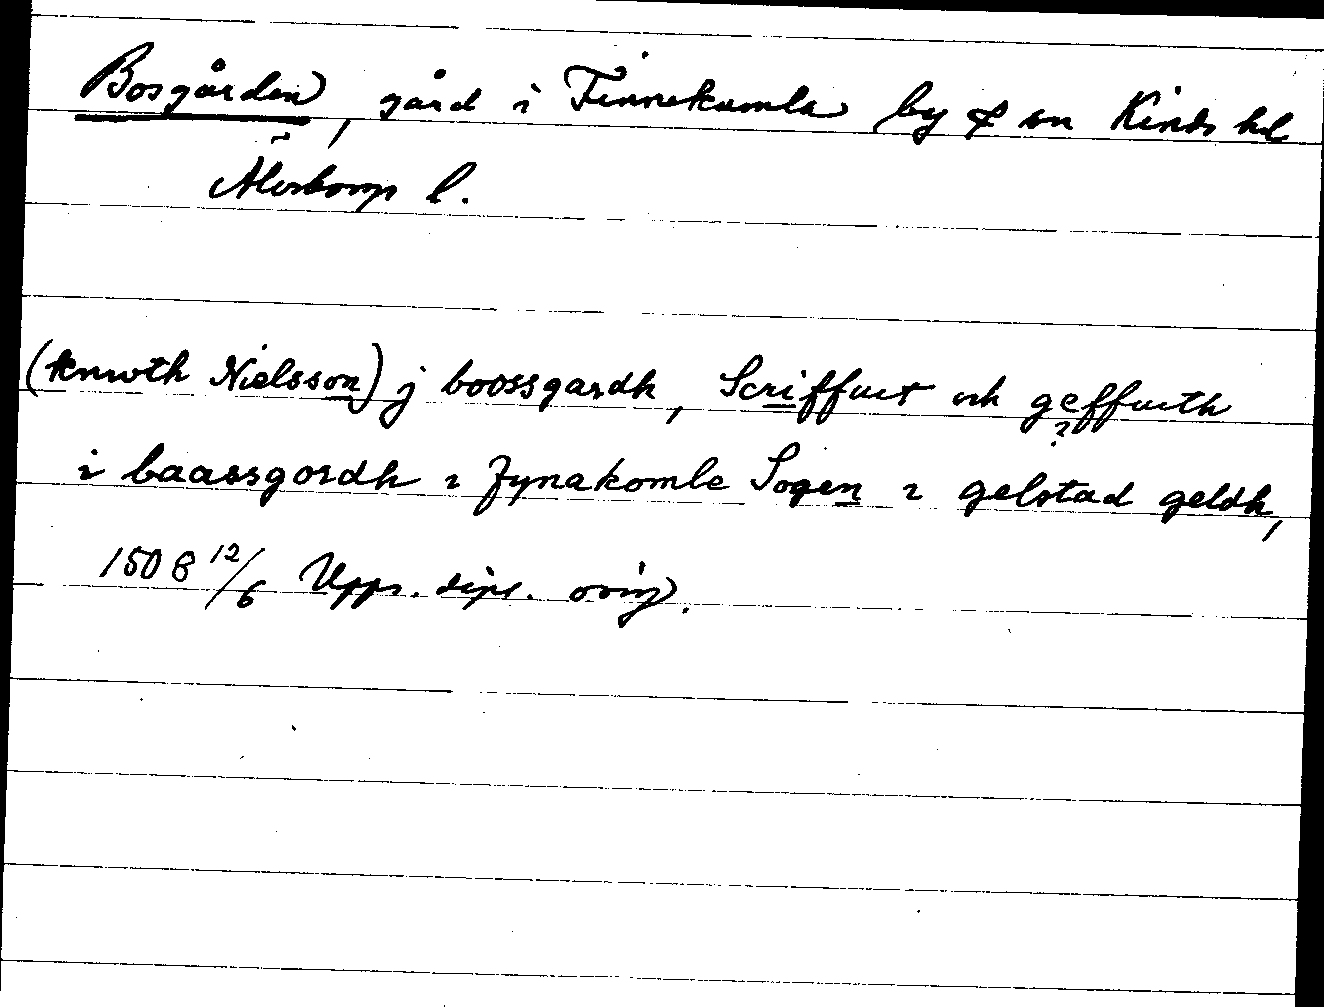 Bosgården, gård i Finnekumla by & sn Kinds hd
Älvsborgs l.
(knwth Nielsson) j boossgardh, Scriffuet och geffueth
?
i baassgordh i fynakomle Sogen i gelstad geldh,
1508 12/6 Upps. dipl. orig.